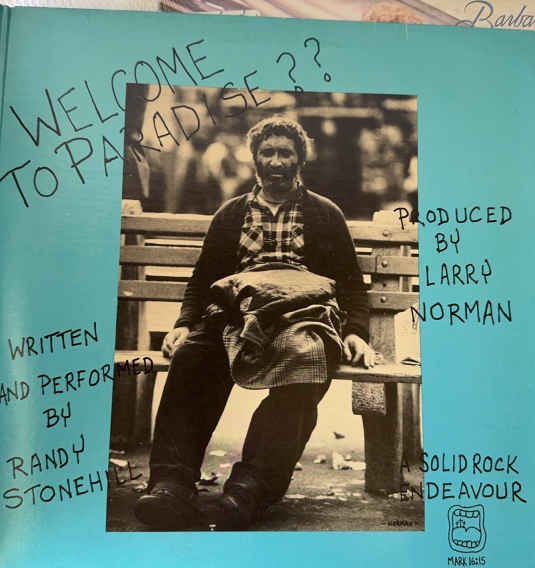 Barba
WELCOME
TO PARADISE??
PRODUCED
BY
LARRY
NORMAN
WRITTEN
AND PERFORMED
BY
RANDY
STONEHILL
A SOLID ROCK
ENDEAVOUR
NORMAN
MARK 16:15